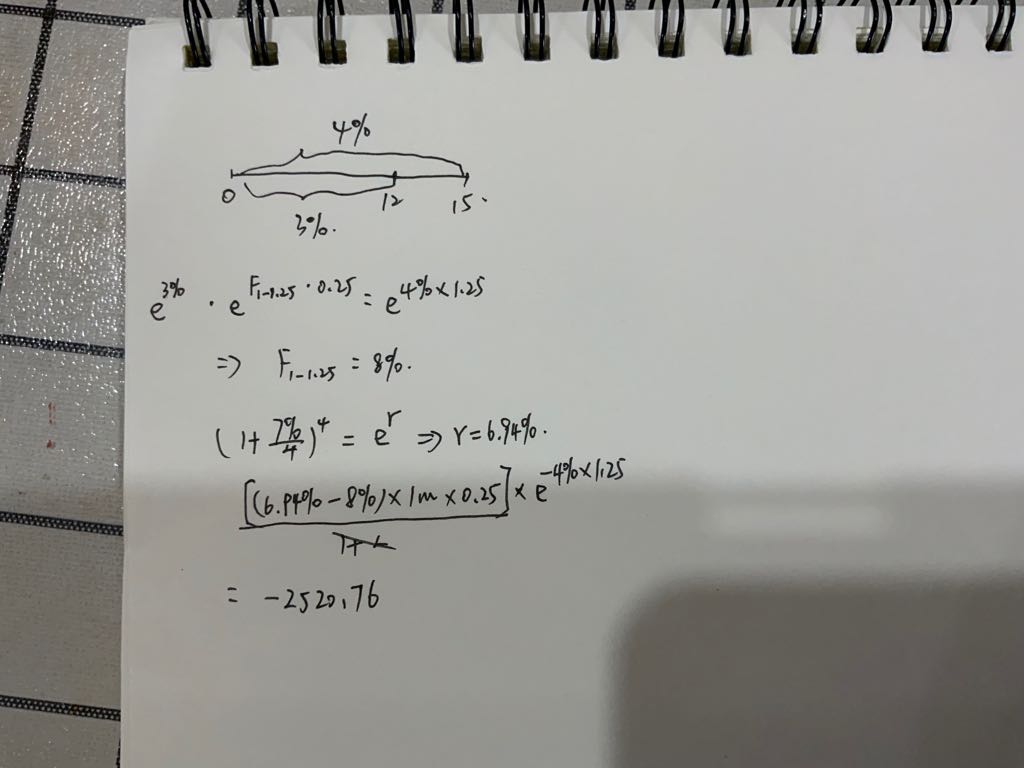 4%
0 12 15.
3%.
e^{3%} · e^{F_{1-1.25} · 0.25} = e^{4% × 1.25}
⇒ F_{1-1.25} = 8%.
(1 + 7%/4)^4 = e^r ⇒ r = 6.94%.
[(6.94% - 8%) × 1m × 0.25] × e^{-4% × 1.25}
= -2520.76